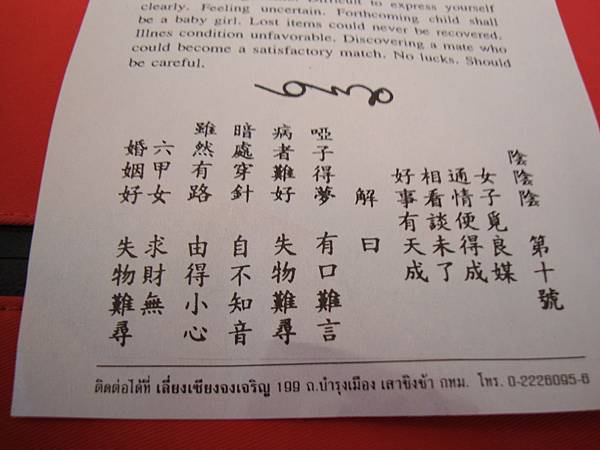 Difficult to express yourself
clearly. Feeling uncertain. Forthcoming child shall
be a baby girl. Lost items could never be recovered.
Illnes condition unfavorable. Discovering a mate who
could become a satisfactory match. No lucks. Should
be careful.
陰陰陰 第十號
女子覓良媒
通情便得成
相看談未了
好事有天成
解曰
啞子得夢 有口難言
病者難好 失物難尋
暗處穿針 自不知音
雖然有路 由得小心
六甲女 求財無
婚姻好 失物難尋
ติดต่อได้ที่ เลี่ยงเซียงจงเจริญ 199 ถ.บำรุงเมือง เสาชิงช้า กทม. โทร. 0-2226095-6